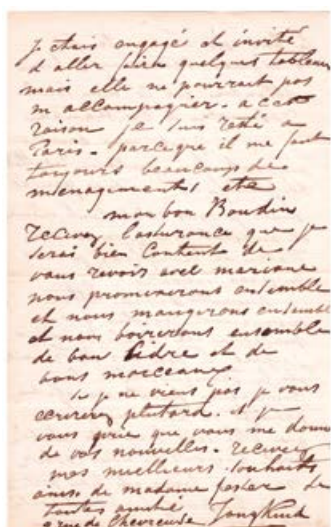 j etais engagé et invité
d aller faire quelques tableau
mais elle ne pourrait pas
m accompagnier. a cet
raison je suis resté a
Paris. parceque il me faut
toujours beaucoup de
menagements, ete
mon bon Boudin
recevez l'assurance que je
serai bien Content de
vous revoir avec mariane
nous promenerons ensemble
et nous mangerons ensemble
et nous boirerons ensemble
de bon Cidre et de
bons morceaux
Si je ne viens pas je vous
ecrirez plutard. et je
vous prie que vous me donne
de vos nouvelles. recevez
mes meilleurs Souhaits
ainsi de madame fesser de
toutes amitié
rue de Chevreuse Jongkind